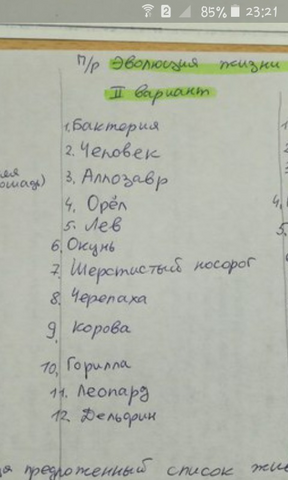 85% 23:21
П/р Эволюция жизни
II вариант
1. Бактерия
2. Человек
3. Аллозавр
4. Орёл
5. Лев
6. Окунь
7. Шерстистый носорог
8. Черепаха
9. Корова
10. Горилла
11. Леопард
12. Дельфин
предложенный список